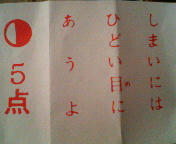 しまいには
ひどい目に
め
あうよ
5点